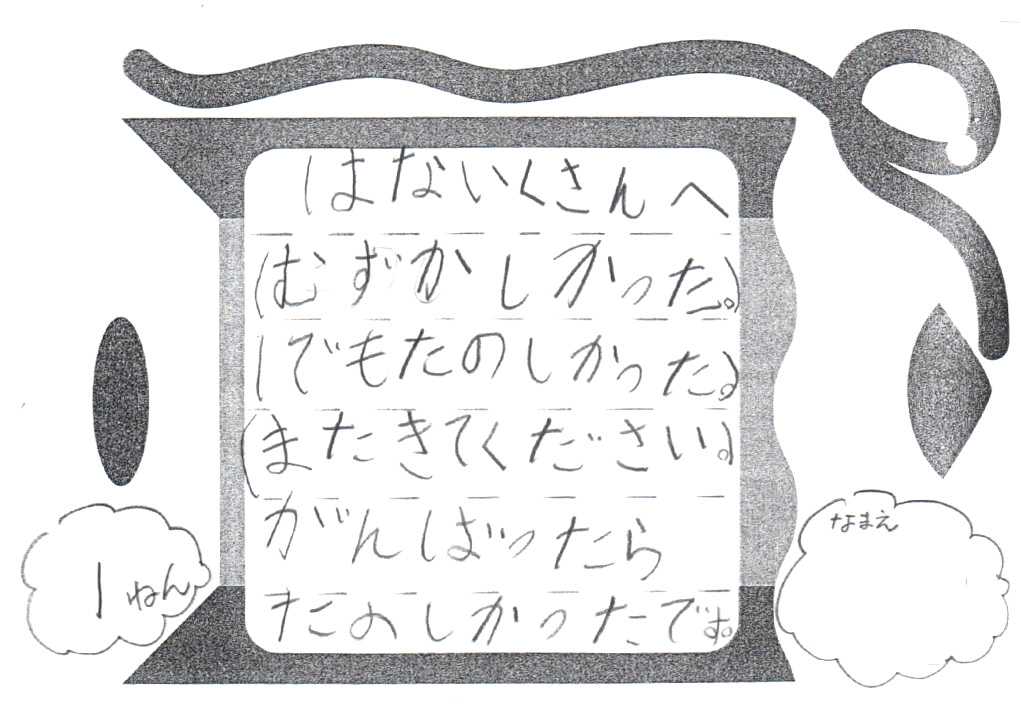 はないくさんへ
(むずかしかった。)
(でもたのしかった。)
(またきてください。)
がんばったら
たのしかったです。
1ねん
なまえ